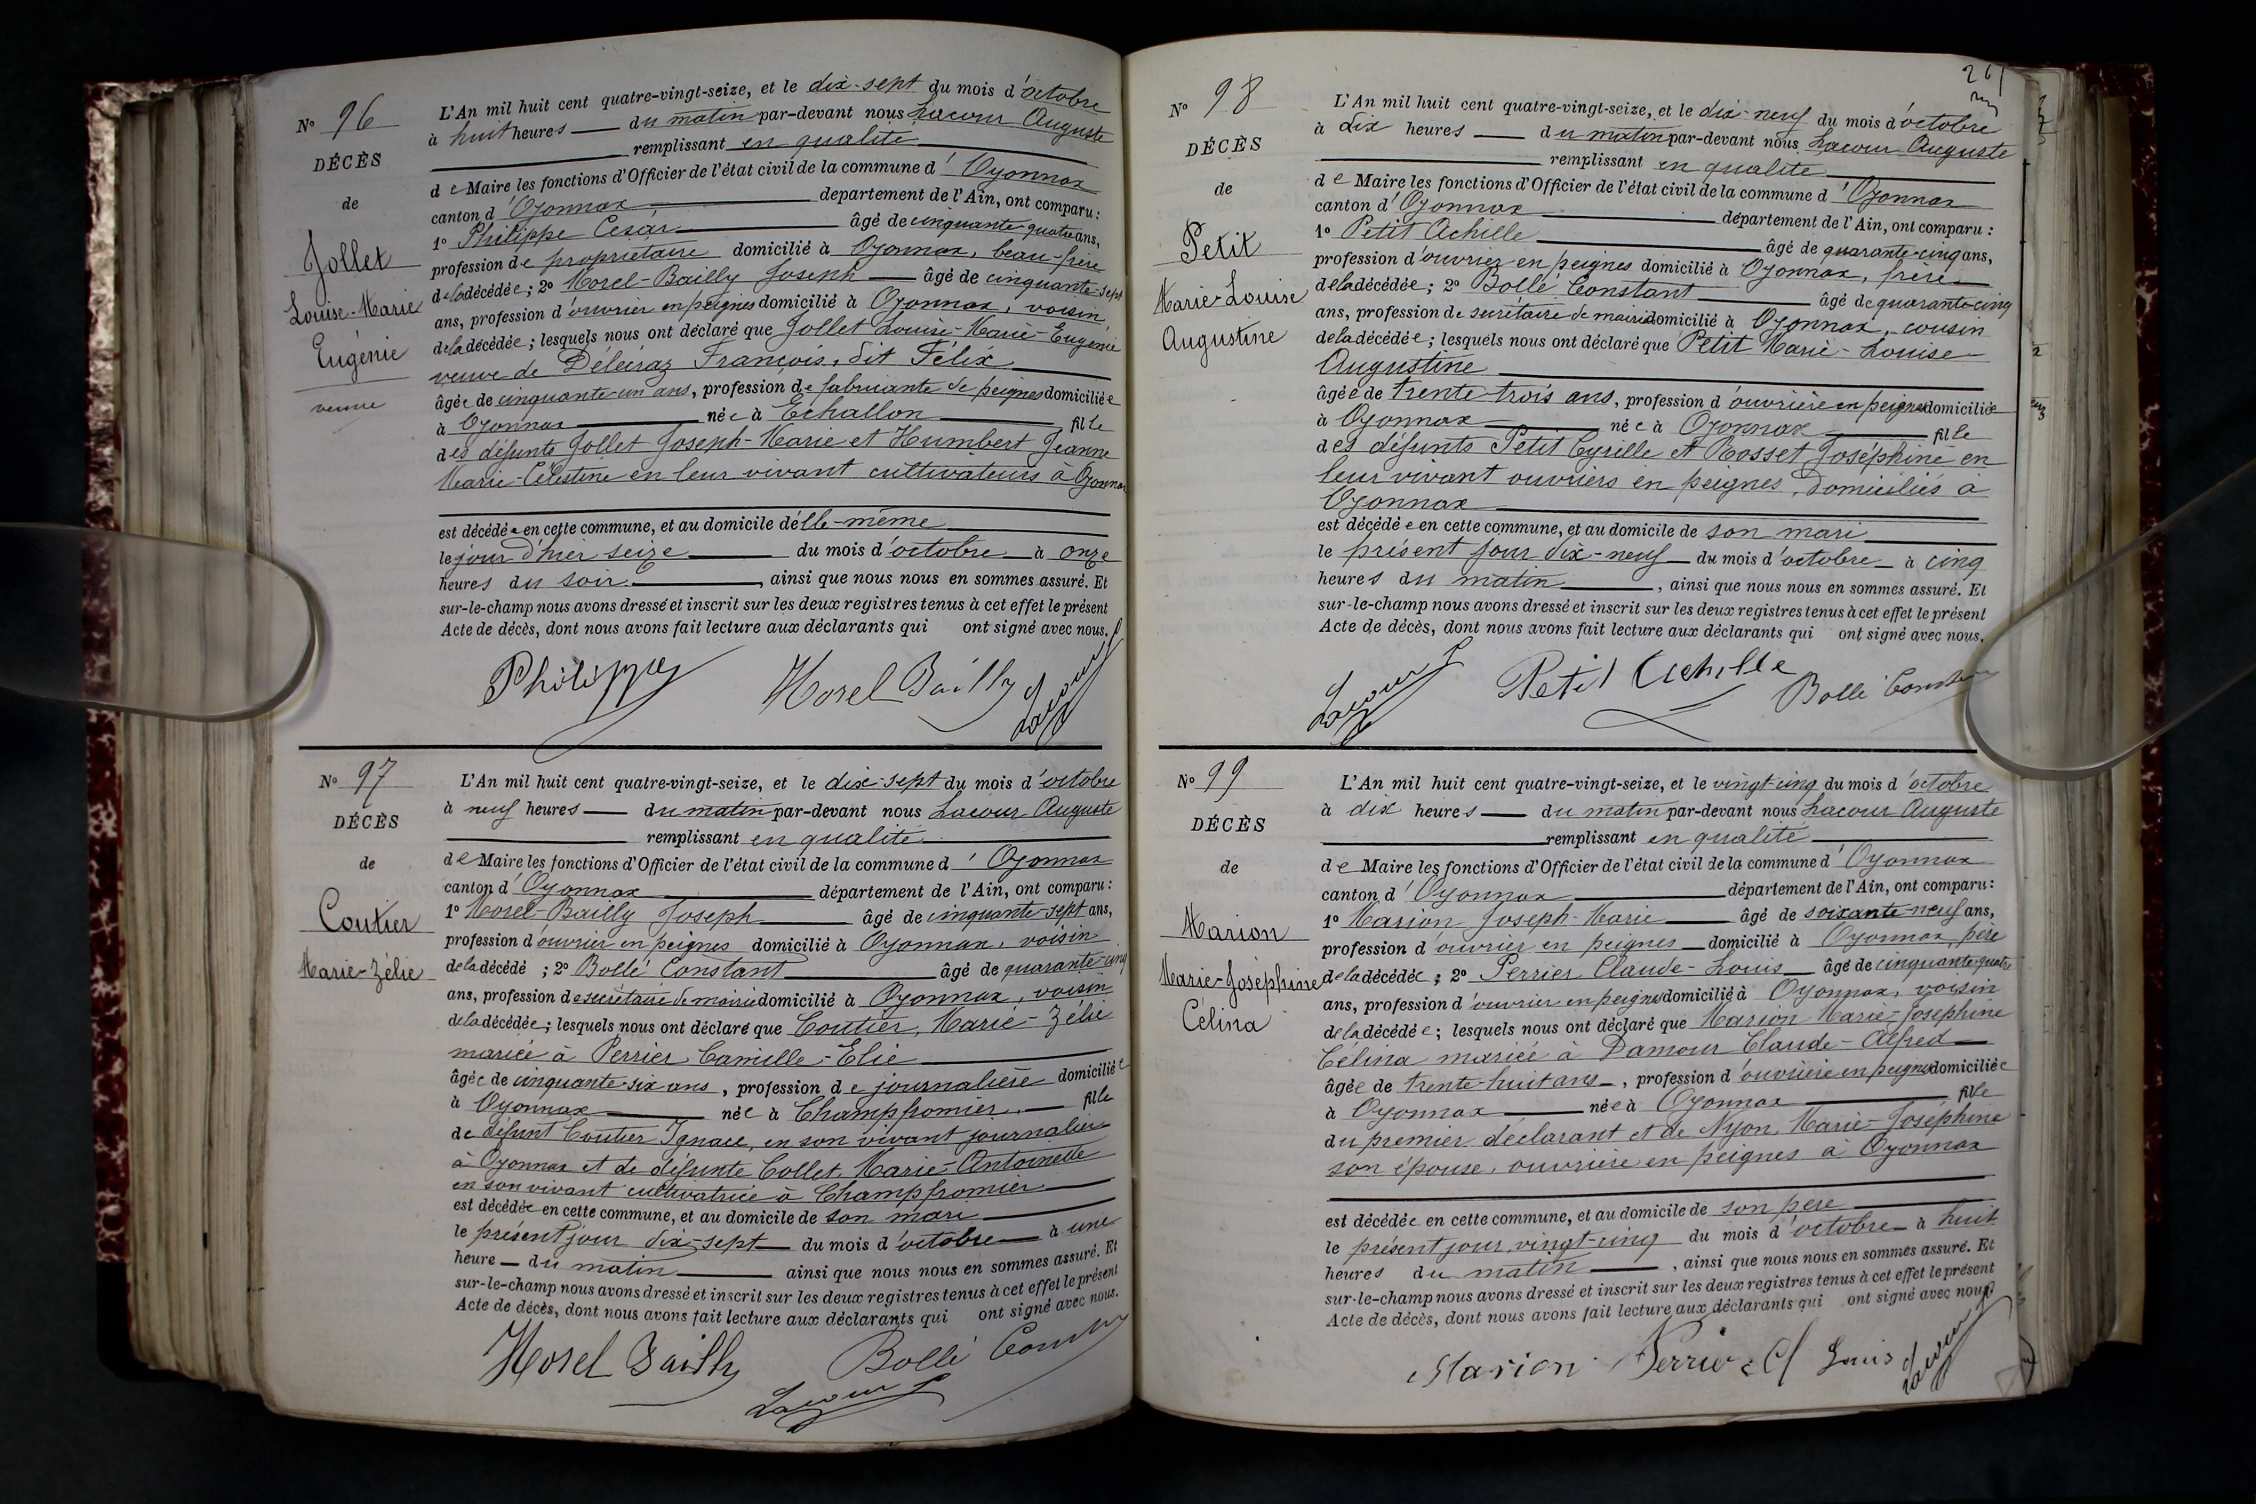 N° 96
DÉCÈS
de
Jollet
Louise-Marie
Eugénie
veuve
L'An mil huit cent quatre-vingt-seize, et le dix-sept du mois d'octobre
à huit heures du matin par-devant nous Lacour Auguste
remplissant en qualité
de Maire les fonctions d'Officier de l'état civil de la commune d'Oyonnax
canton d'Oyonnax département de l'Ain, ont comparu :
1° Philippe César âgé de cinquante quatre ans,
profession de propriétaire domicilié à Oyonnax, beau-frère
de la décédée ; 2° Morel-Bailly Joseph âgé de cinquante-sept
ans, profession d'ouvrier en peignes domicilié à Oyonnax, voisin
de la décédée ; lesquels nous ont déclaré que Jollet Louise-Marie-Eugénie
veuve de Délécraz François, dit Félix
âgée de cinquante-un ans, profession de fabricante de peignes domiciliée
à Oyonnax née à Echallon fille
des défunts Jollet Joseph-Marie et Humbert Jeanne
Marie-Célestine en leur vivant cultivateurs à Oyonnax
est décédée en cette commune, et au domicile d'elle-même
le jour d'hier seize du mois d'octobre à onze
heures du soir, ainsi que nous nous en sommes assuré. Et
sur-le-champ nous avons dressé et inscrit sur les deux registres tenus à cet effet le présent
Acte de décès, dont nous avons fait lecture aux déclarants qui ont signé avec nous.
Philippe Morel Bailly Lacour
N° 97
DÉCÈS
de
Coutier
Marie-Zélie
L'An mil huit cent quatre-vingt-seize, et le dix-sept du mois d'octobre
à neuf heures du matin par-devant nous Lacour Auguste
remplissant en qualité
de Maire les fonctions d'Officier de l'état civil de la commune d'Oyonnax
canton d'Oyonnax département de l'Ain, ont comparu :
1° Morel-Bailly Joseph âgé de cinquante-sept ans,
profession d'ouvrier en peignes domicilié à Oyonnax, voisin
de la décédé ; 2° Bollé Constant âgé de quarante-cinq
ans, profession de secrétaire de mairie domicilié à Oyonnax, voisin
de la décédée ; lesquels nous ont déclaré que Coutier, Marie-Zélie
mariée à Perrier Camille-Elie
âgée de cinquante-six ans, profession de journalière domiciliée
à Oyonnax née à Champfromier, fille
de défunt Coutier Ignace, en son vivant journalier
à Oyonnax et de défunte Collet, Marie-Antoinette
en son vivant cultivatrice à Champfromier
est décédée en cette commune, et au domicile de son mari
le présent jour dix-sept du mois d'octobre à une
heure du matin ainsi que nous nous en sommes assuré. Et
sur-le-champ nous avons dressé et inscrit sur les deux registres tenus à cet effet le présent
Acte de décès, dont nous avons fait lecture aux déclarants qui ont signé avec nous.
Morel Bailly Bollé Constant
Lacour
N° 98
DÉCÈS
de
Petit
Marie-Louise
Augustine
L'An mil huit cent quatre-vingt-seize, et le dix-neuf du mois d'octobre
à dix heures du matin par-devant nous Lacour Auguste
remplissant en qualité
de Maire les fonctions d'Officier de l'état civil de la commune d'Oyonnax
canton d'Oyonnax département de l'Ain, ont comparu :
1° Petit Achille âgé de quarante-cinq ans,
profession d'ouvrier en peignes domicilié à Oyonnax, frère
de la décédée ; 2° Bollé Constant âgé de quarante-cinq
ans, profession de secrétaire de mairie domicilié à Oyonnax, cousin
de la décédée ; lesquels nous ont déclaré que Petit Marie-Louise
Augustine
âgée de trente-trois ans, profession d'ouvrière en peignes domiciliée
à Oyonnax née à Oyonnax fille
des défunts Petit Cyrille et Rosset Joséphine en
leur vivant ouvriers en peignes, domiciliés à
Oyonnax
est décédée en cette commune, et au domicile de son mari
le présent jour dix-neuf du mois d'octobre à cinq
heures du matin, ainsi que nous nous en sommes assuré. Et
sur-le-champ nous avons dressé et inscrit sur les deux registres tenus à cet effet le présent
Acte de décès, dont nous avons fait lecture aux déclarants qui ont signé avec nous.
Lacour Petit Achille Bollé Constant
N° 99
DÉCÈS
de
Marion
Marie-Joséphine
Célina
L'An mil huit cent quatre-vingt-seize, et le vingt-cinq du mois d'octobre
à dix heures du matin par-devant nous Lacour Auguste
remplissant en qualité
de Maire les fonctions d'Officier de l'état civil de la commune d'Oyonnax
canton d'Oyonnax département de l'Ain, ont comparu :
1° Marion Joseph-Marie âgé de soixante-neuf ans,
profession d'ouvrier en peignes domicilié à Oyonnax, père
de la décédée ; 2° Perrier Claude-Louis âgé de cinquante-quatre
ans, profession d'ouvrier en peignes domicilié à Oyonnax, voisin
de la décédée ; lesquels nous ont déclaré que Marion Marie-Joséphine
Célina mariée à Damour Claude-Alfred
âgée de trente-huit ans, profession d'ouvrière en peignes domiciliée
à Oyonnax née à Oyonnax fille
du premier déclarant et de Nyon, Marie-Joséphine
son épouse, ouvrière en peignes à Oyonnax
est décédée en cette commune, et au domicile de son père
le présent jour vingt-cinq du mois d'octobre à huit
heures du matin, ainsi que nous nous en sommes assuré. Et
sur-le-champ nous avons dressé et inscrit sur les deux registres tenus à cet effet le présent
Acte de décès, dont nous avons fait lecture aux déclarants qui ont signé avec nous.
Marion Perrier Cl Louis Lacour